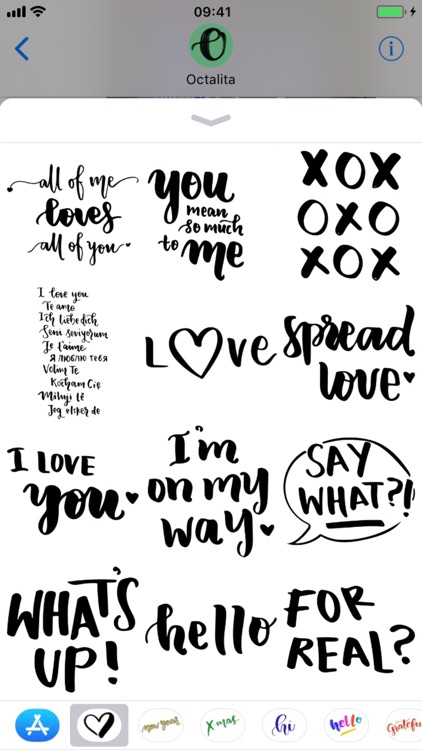 09:41
Octalita
all of me
loves
all of you
you
mean
so much
to me
XOX
OXO
XOX
I love you
Te amo
Ich liebe dich
Seni seviyorum
Je t'aime
Я люблю тебя
Volim Te
Kocham Cię
Miluji tě
Jeg elsker de
L♡ve
spread
love
I LOVE
you
I'm
on my
way
SAY
WHAT?!
WHAT'S
UP!
hello
FOR
REAL?
new year!
X-mas
hi
hello
Grateful